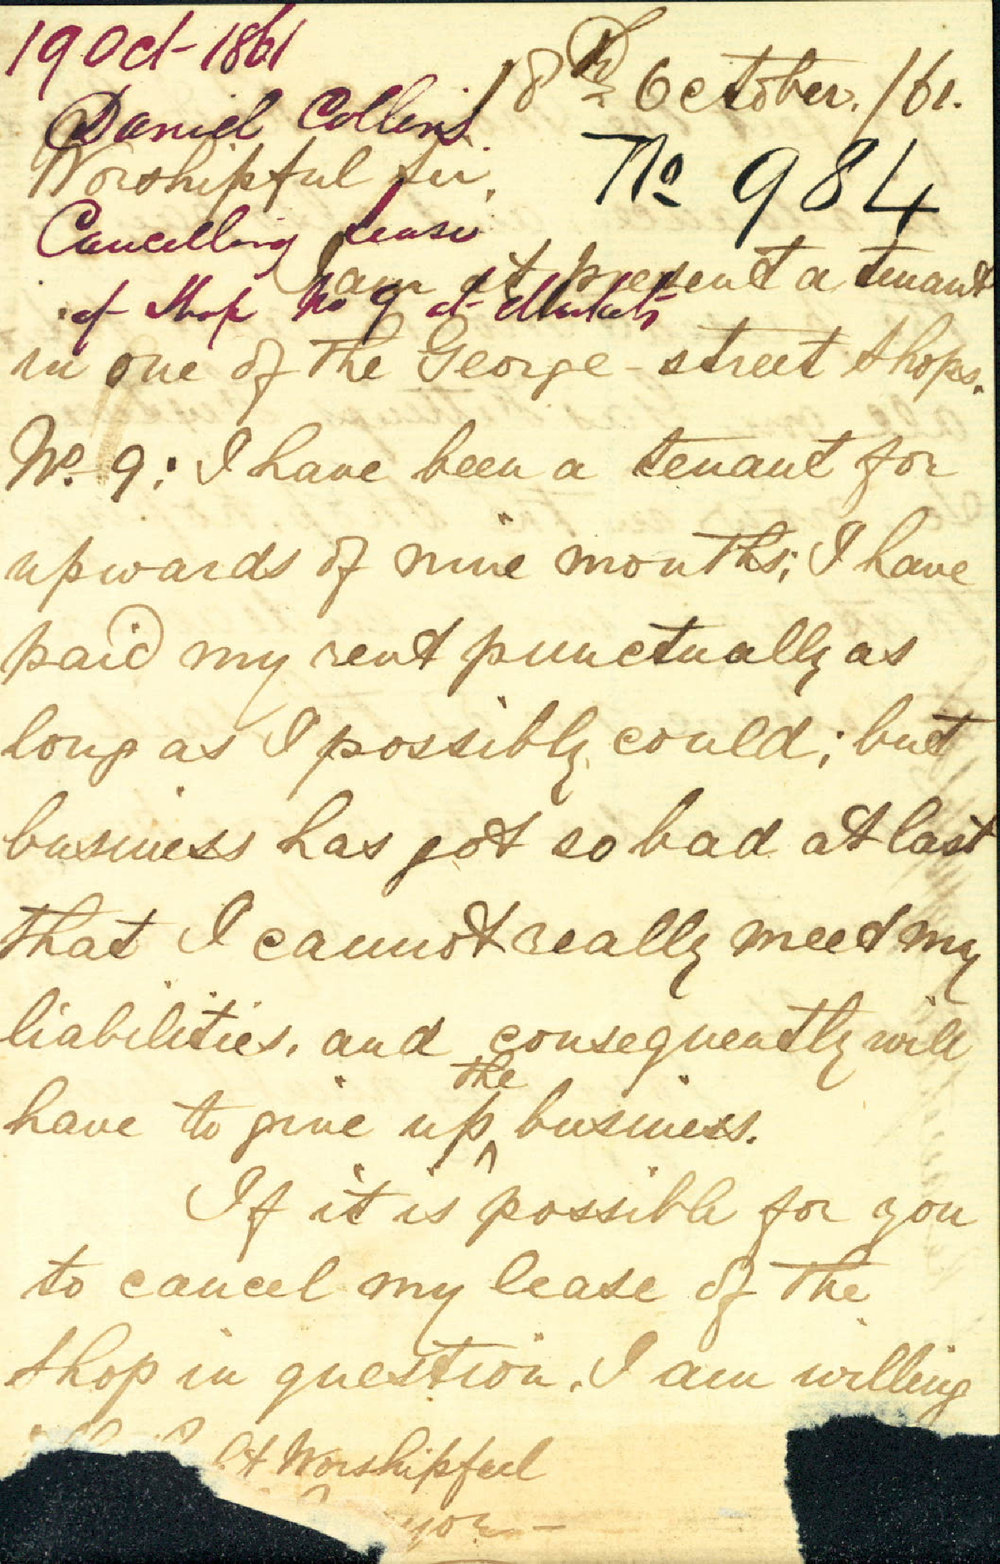 19 Oct 1861
18th October. /61.
Daniel Collins
Worshipful Sir.
No 984
Cancelling lease
I am at present a tenant
of Shop No 9 at Markets
in one of the George-street shops.
No. 9: I have been a tenant for
upwards of nine months; I have
paid my rent punctually as
long as I possibly could; but
business has got so bad at last
that I cannot really meet my
liabilities, and consequently will
have to give up the business.
If it is possible for you
to cancel my lease of the
shop in question, I am willing
Worshipful